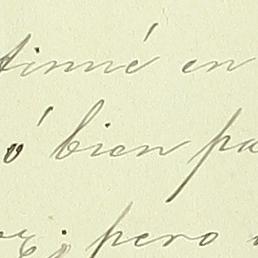 tinué en
ó bien pa
pero